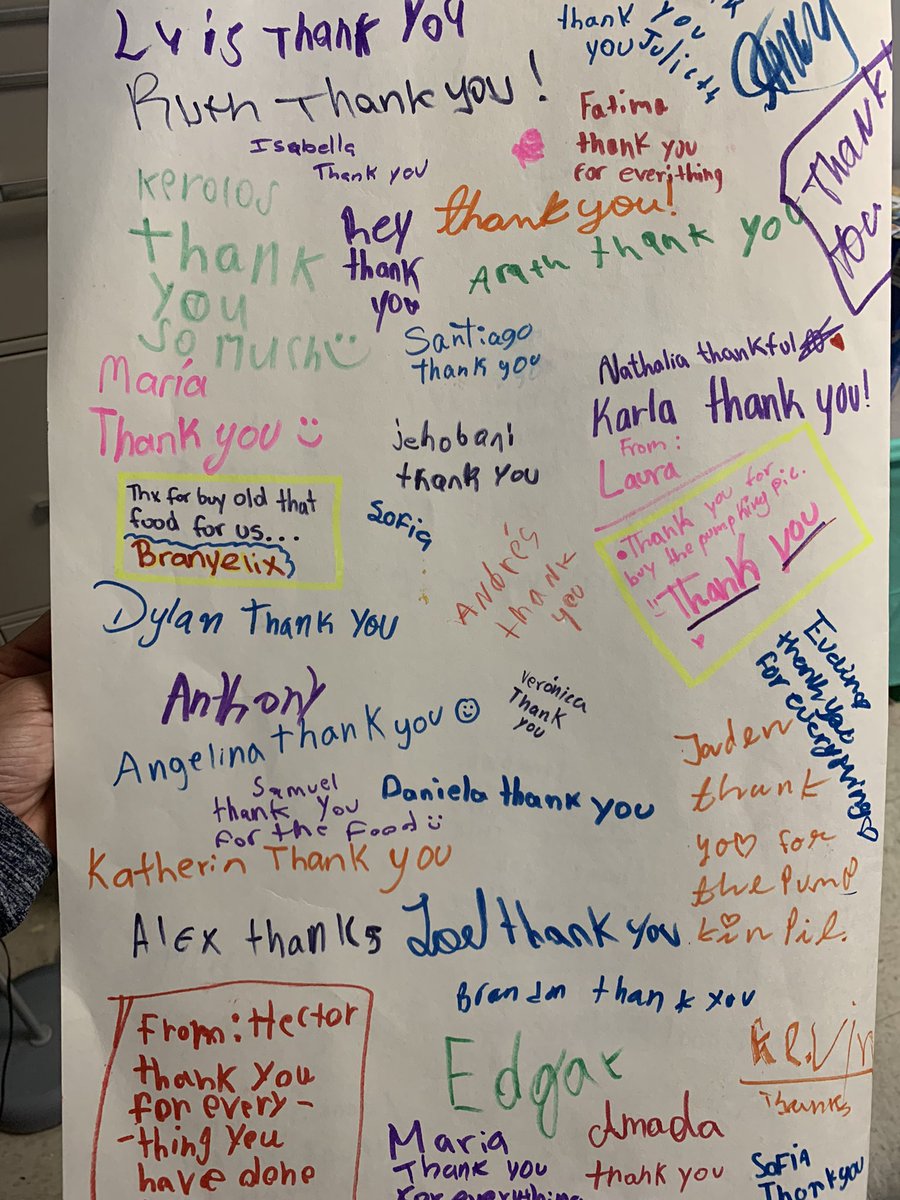 Luis Thank You
thank you
you Julieth
Ruth Thank you!
Fatima
thank you
for everything
Thank
You
Isabella
Thank you
kerolos
thank
you
so much
hey
thank
you
thank you!
Arath thank you
Santiago
thank you
Nathalia thankful
Karla thank you!
María
Thank you
jehobani
thank you
From:
Laura
Thank you for
buy the pumpking pic.
"Thank you
Thx for buy old that
food for us...
Branyelix
Sofia
Andrés
thank
you
Dylan Thank you
Anthony
Verónica
Thank
you
Evelina
thank you
for everything
Angelina thank you
Jaden
thank
you for
the Pump
kin Pie.
Samuel
thank you
for the food
Daniela thank you
Katherin Thank you
Alex thanks
Joel thank you
Brandon thank you
From: Hector
thank you
for every-
-thing you
have done
Edgar
Kelvin
Thanks
Maria
Thank you
for everything
Amada
thank you
Sofia
Thank you